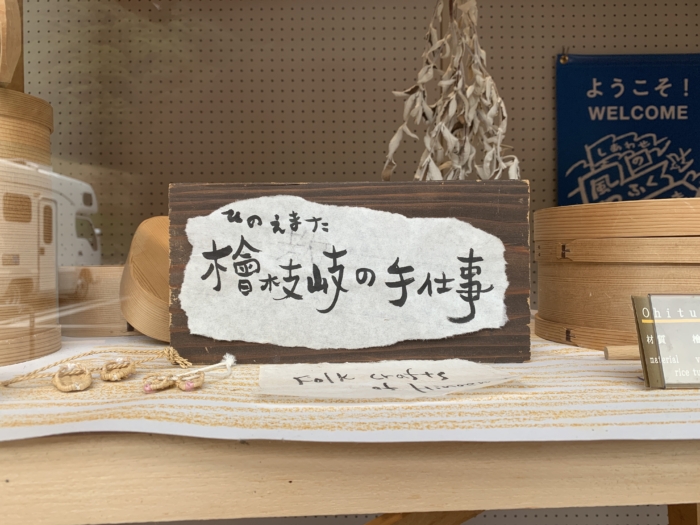 ようこそ！
WELCOME
しあわせ
の
風
ふく
ひのえまた
檜枝岐の手仕事
Folk crafts
of
Ohitu
材質
material
rice